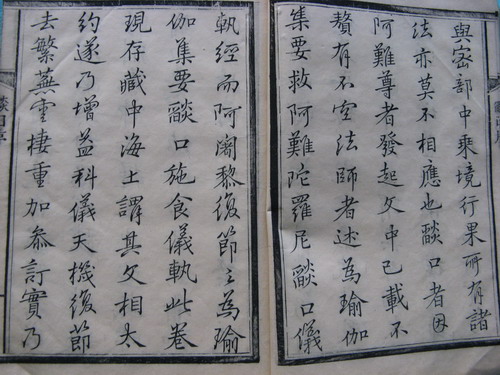 與密部中乘境行果所有諸
法亦莫不相應也燄口者因
阿難尊者發起文中已載不
贅有不空法師者述為瑜伽
集要救阿難陀羅尼燄口儀
軌經而阿闍黎復節之為瑜
伽集要燄口施食儀軌此卷
現存藏中海上謂其文相太
約遂乃增益科儀天機復節
去繁蕪雲棲重加參訂實乃